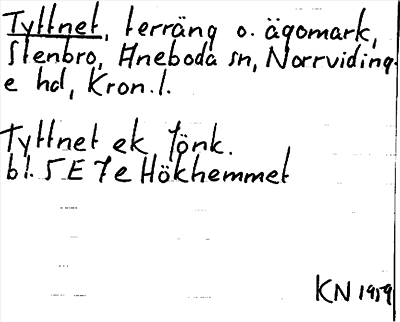 Tyttnet, terräng o. ägomark,
Stenbro, Aneboda sn, Norrviding-
e hd, Kron. l.
Tyttnet ek Jönk.
bl. 5 E 7 e Hökhemmet
KN 1959